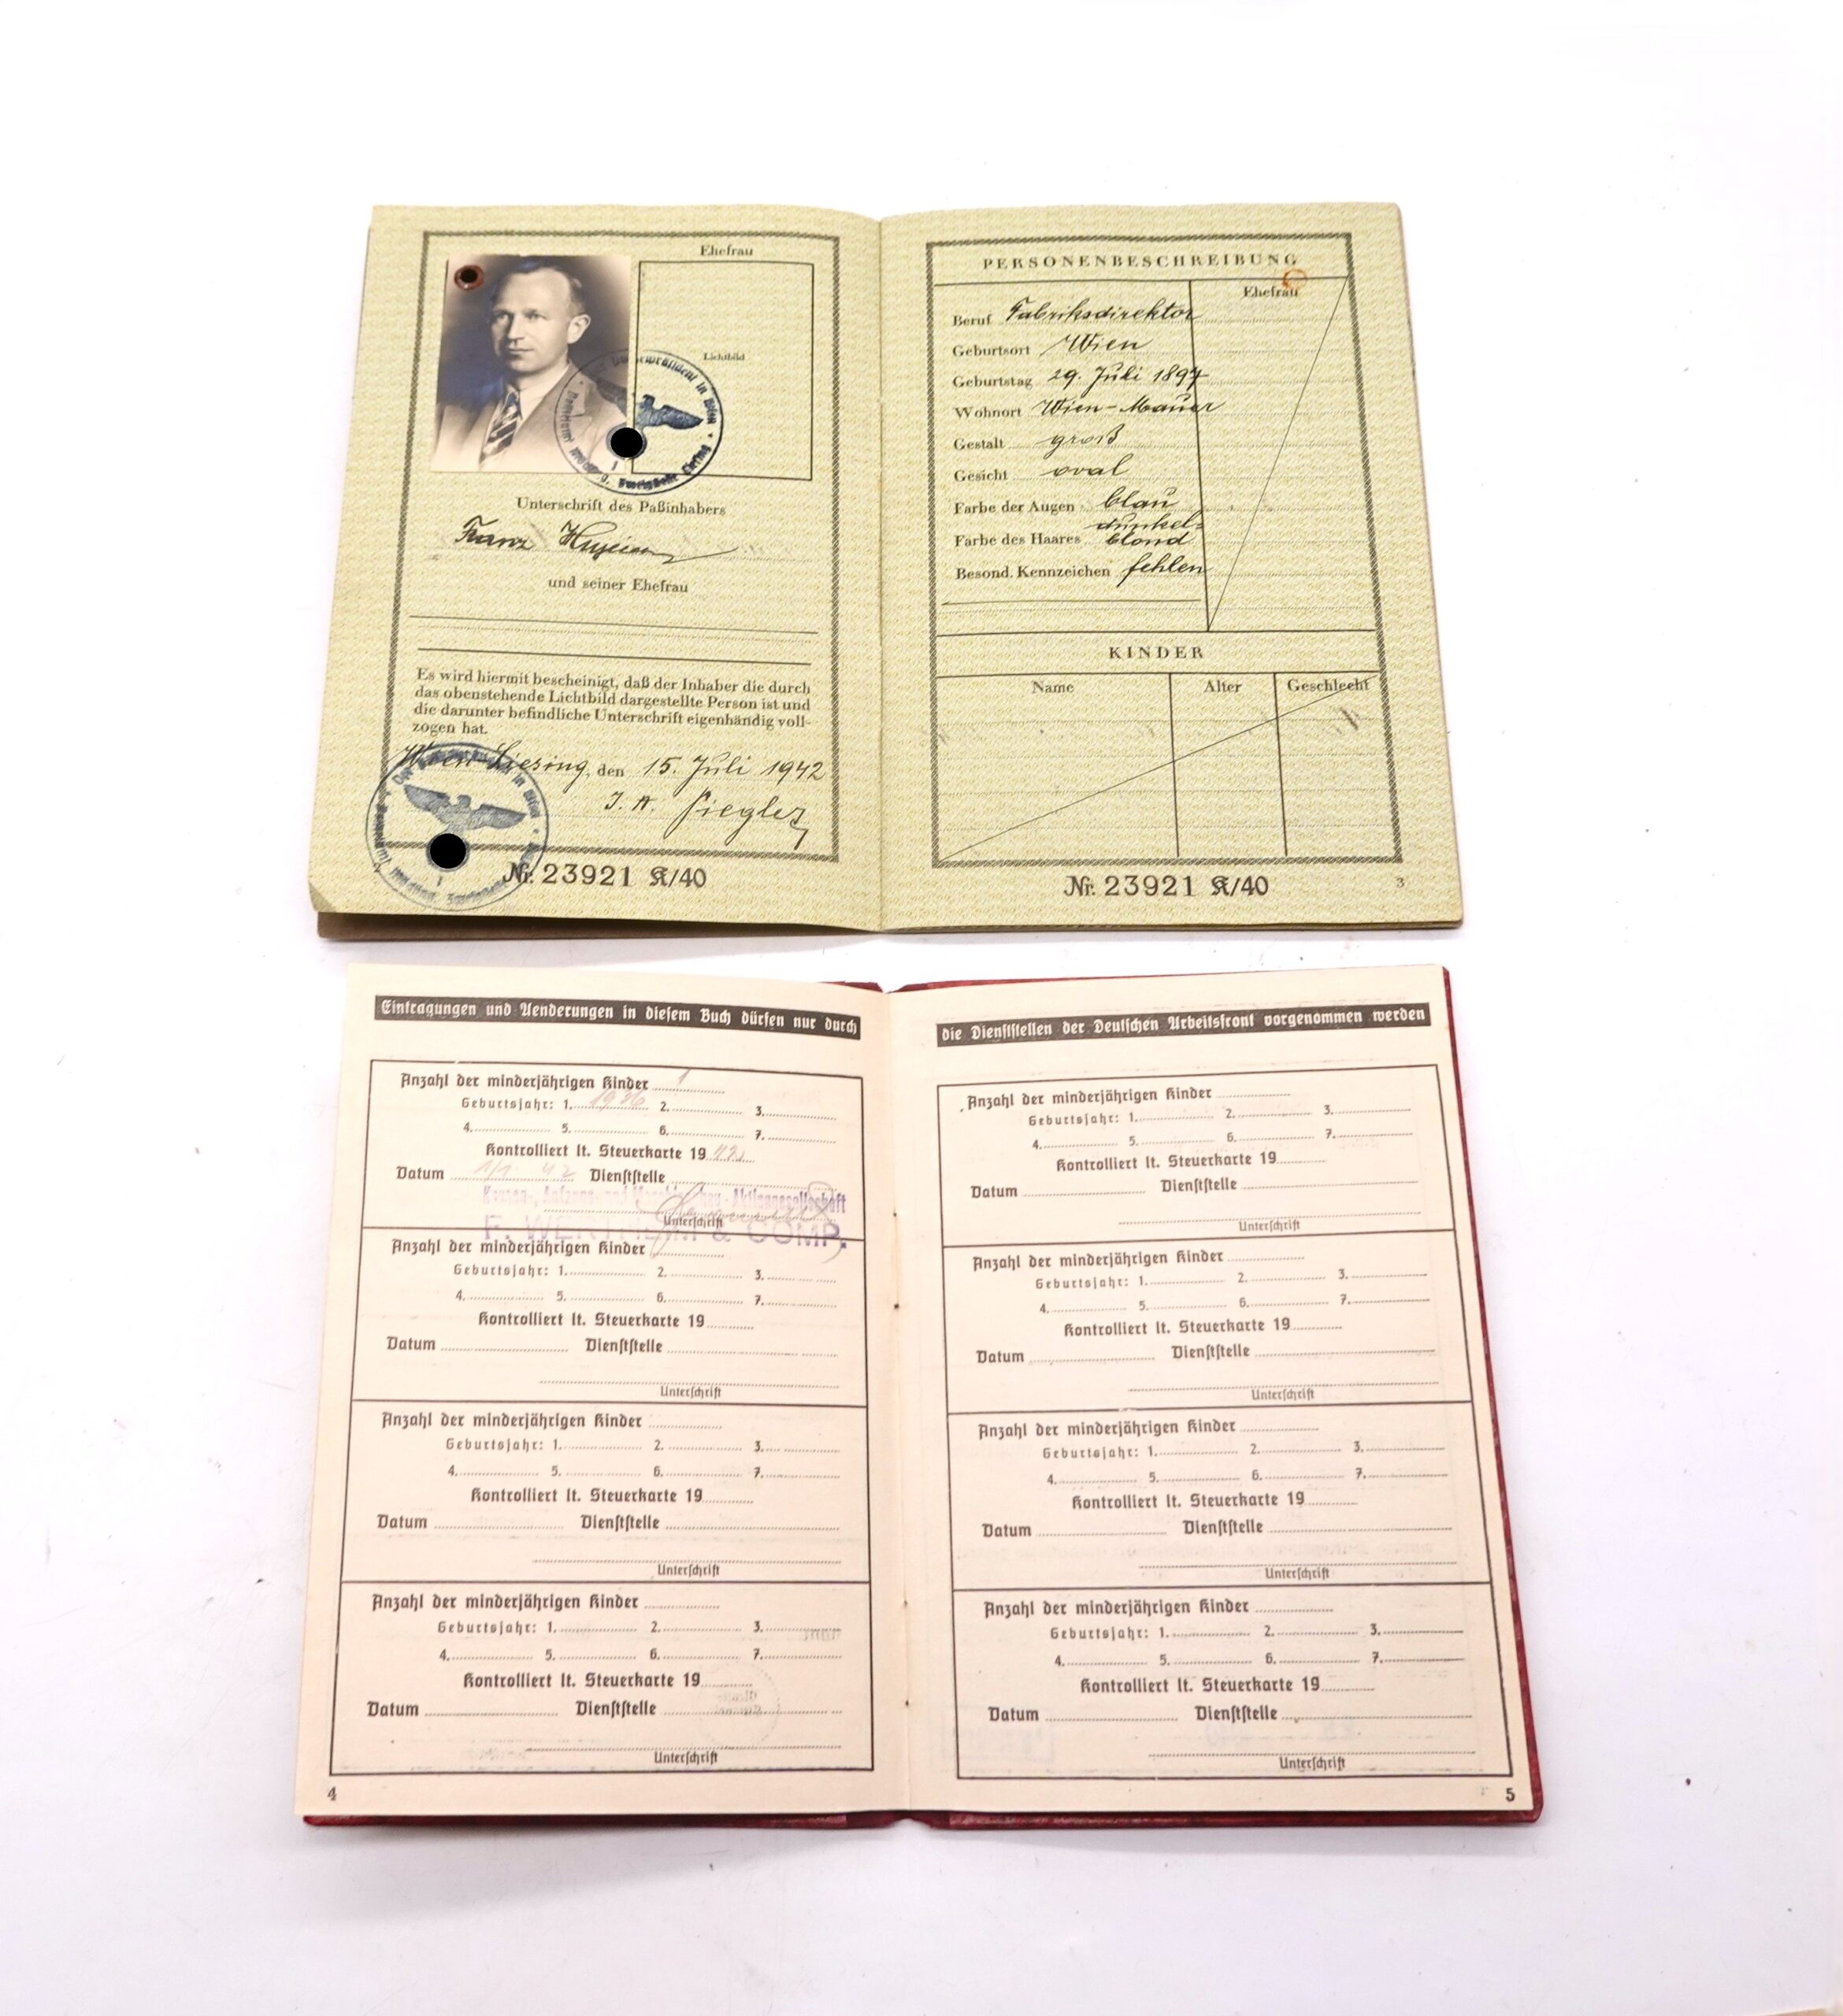 Ehefrau
Lichtbild
Unterschrift des Paßinhabers
Franz
und seiner Ehefrau
Es wird hiermit bescheinigt, daß der Inhaber die durch
das obenstehende Lichtbild dargestellte Person ist und
die darunter befindliche Unterschrift eigenhändig voll-
zogen hat.
Wien-Liesing, den 15. Juli 1942
J. A. Ziegler
Nr. 23921 K/40
PERSONENBESCHREIBUNG
Ehefrau
Beruf Fabriksdirektor
Geburtsort Wien
Geburtstag 29. Juli 1897
Wohnort Wien-Mauer
Gestalt groß
Gesicht oval
Farbe der Augen blau
dunkel-
Farbe des Haares blond
Besond. Kennzeichen fehlen
KINDER
Name Alter Geschlecht
Nr. 23921 K/40
3
Eintragungen und Aenderungen in diesem Buch dürfen nur durch
Anzahl der minderjährigen Kinder 1
Geburtsjahr: 1. 1936 2. 3.
4. 5. 6. 7.
Kontrolliert lt. Steuerkarte 19 42
Datum 1/1 42 Dienststelle
Aktiengesellschaft
Unterschrift
F. WERTHEIM & COMP.
Anzahl der minderjährigen Kinder
Geburtsjahr: 1. 2. 3.
4. 5. 6. 7.
Kontrolliert lt. Steuerkarte 19
Datum Dienststelle
Unterschrift
Anzahl der minderjährigen Kinder
Geburtsjahr: 1. 2. 3.
4. 5. 6. 7.
Kontrolliert lt. Steuerkarte 19
Datum Dienststelle
Unterschrift
Anzahl der minderjährigen Kinder
Geburtsjahr: 1. 2. 3.
4. 5. 6. 7.
Kontrolliert lt. Steuerkarte 19
Datum Dienststelle
Unterschrift
4
die Dienststellen der Deutschen Arbeitsfront vorgenommen werden
Anzahl der minderjährigen Kinder
Geburtsjahr: 1. 2. 3.
4. 5. 6. 7.
Kontrolliert lt. Steuerkarte 19
Datum Dienststelle
Unterschrift
Anzahl der minderjährigen Kinder
Geburtsjahr: 1. 2. 3.
4. 5. 6. 7.
Kontrolliert lt. Steuerkarte 19
Datum Dienststelle
Unterschrift
Anzahl der minderjährigen Kinder
Geburtsjahr: 1. 2. 3.
4. 5. 6. 7.
Kontrolliert lt. Steuerkarte 19
Datum Dienststelle
Unterschrift
Anzahl der minderjährigen Kinder
Geburtsjahr: 1. 2. 3.
4. 5. 6. 7.
Kontrolliert lt. Steuerkarte 19
Datum Dienststelle
Unterschrift
5